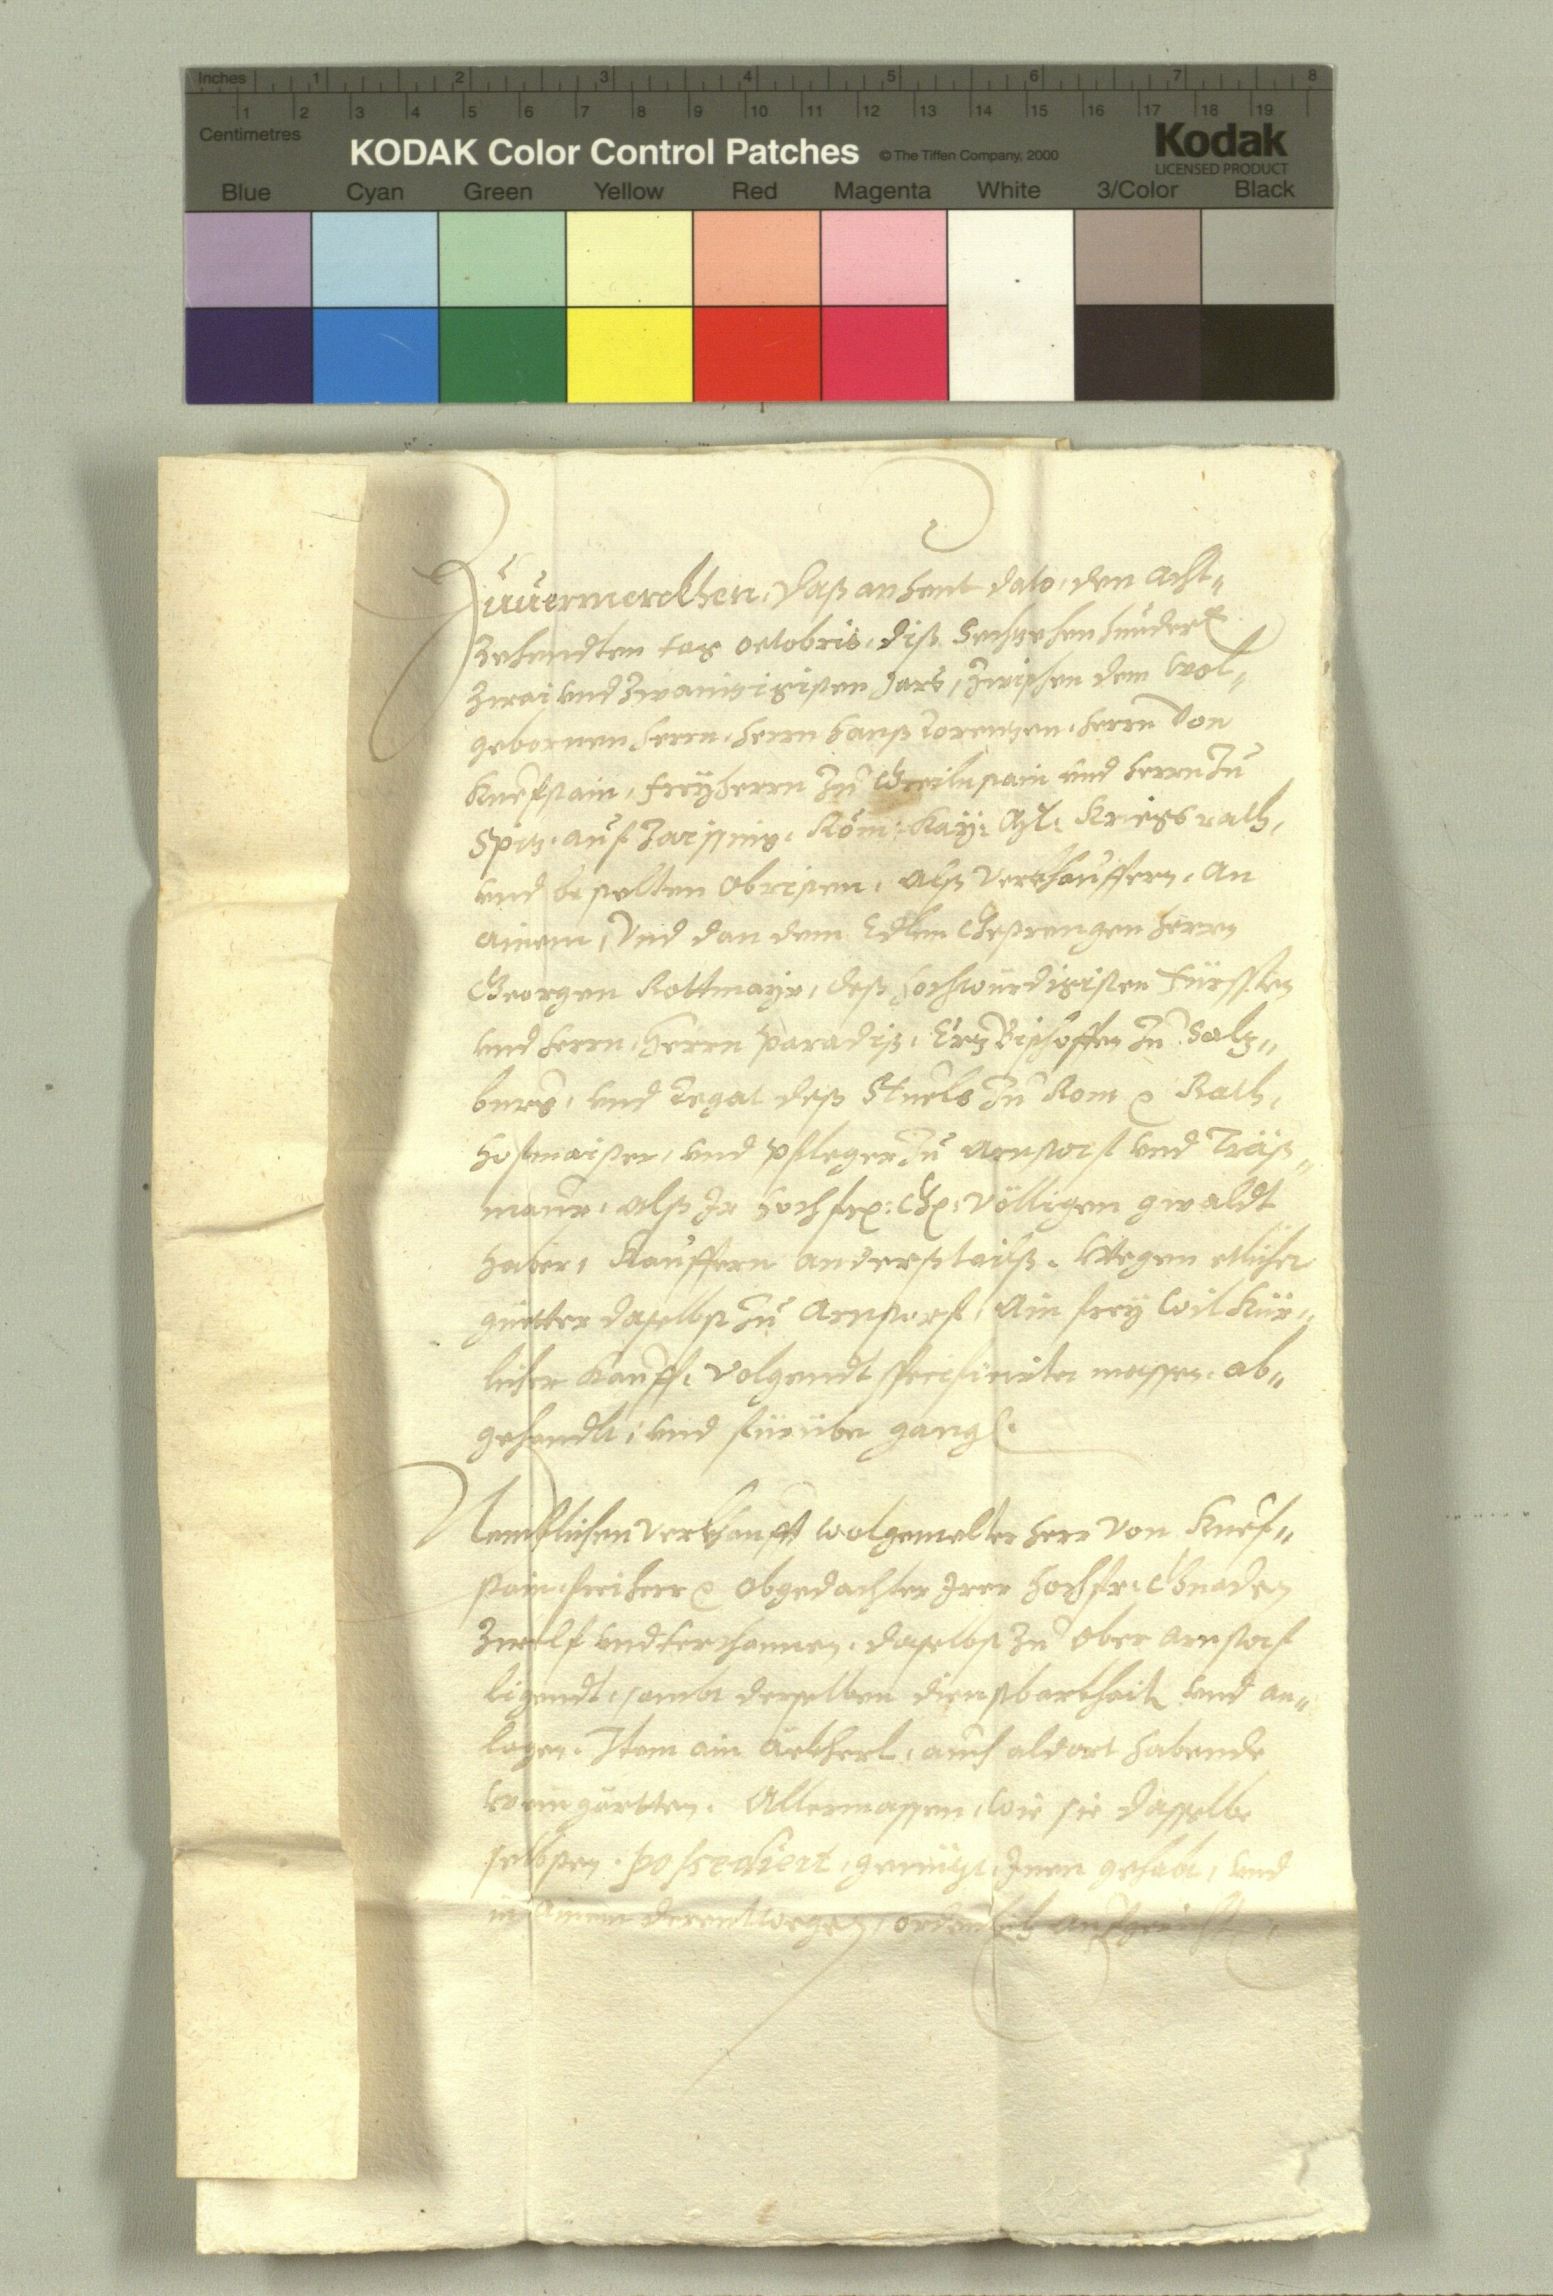 Inches 1 2 3 4 5 6 7 8
1 2 3 4 5 6 7 8 9 10 11 12 13 14 15 16 17 18 19
Centimetres
KODAK Color Control Patches © The Tiffen Company, 2000 Kodak
LICENSED PRODUCT
Blue Cyan Green Yellow Red Magenta White 3/Color Black
Zuuermerckhen, daß an heut dato, den acht-
zehendten tag octobris, diß Sechzehenhundert
zwai und zwainzigisten Jars, zwischen dem Wol-
gebornen herrn, herrn hanß Lorenzen, herrn von
Kuefstain, Freyherrn zu Greilnstain und herrn zu
Spitz, auf Zaissing, Röm: Kay: Mt: Kriegs rath,
und bestelten Obristen, alß verkhauffern, an
ainem, Und dan dem Edlen Gestrengen herrn
Georgen Rottmayr, deß hochwürdigisten Fürssten
und herrn, Herrn Paradiß, ErzBischoffen zu Salz-
burg, und Legat deß Stuels zu Rom Rath,
hofmaister, und Pfleger zu Arnstorf und Träß-
maur, alß Ir hochfr: G: völligen gwaldt
haber, Kauffern anderßtailß, Wegen etlicher
güetter daselbst zu Arnstorf, Ain frey Wilkür-
licher Kauff, volgendt specificirter massen, ab-
gehandlt, und fürüber gang
Nemblichen verkhaufft wolgemelter herr von Kuef-
stain freiherr obgedachter Irer hochfr: Gnaden
Zwelf underthannen, daselbst zu Ober Arnstorf
ligendt, sambt derselben dienstbarkhait und an-
lagen. Item ain äckherl, auch aldort habende
Weingärtten. Allermassen, wie sie dasselbe
selbsten possediert, genützt, Innen gehabt, und
in ainem derentwegen, ordenlich aufgericht